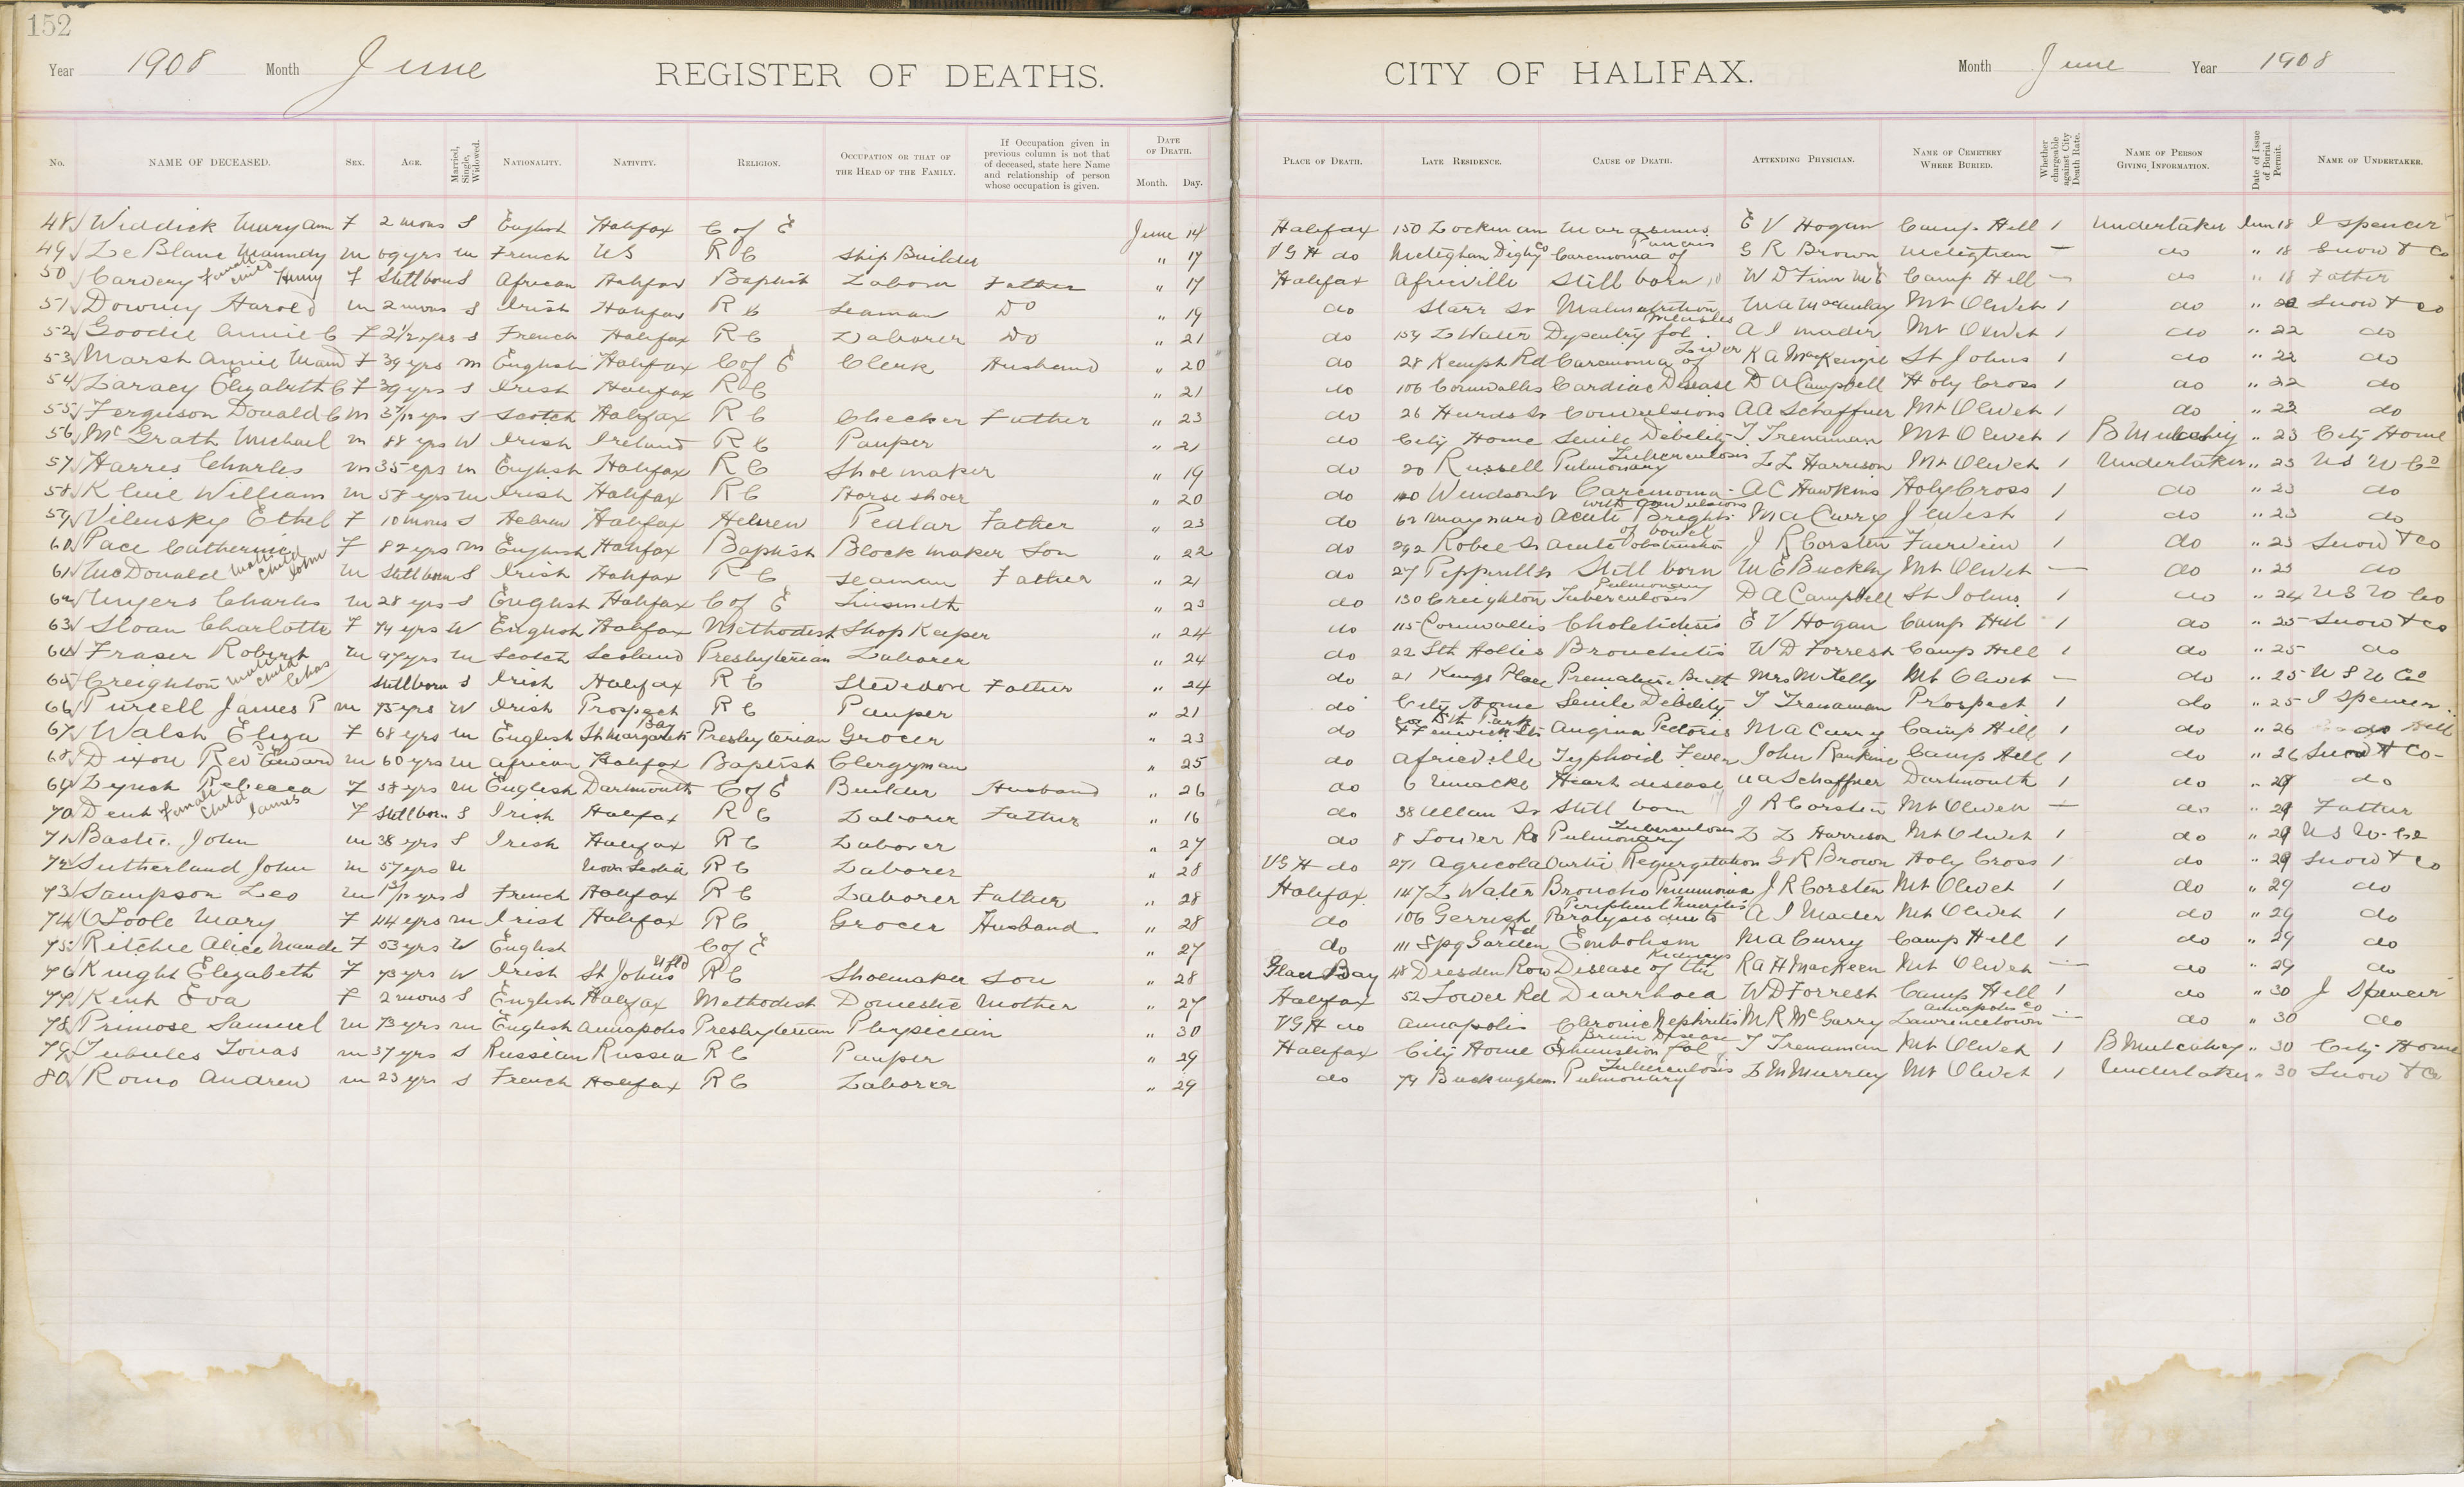 152
Year 1908 Month June REGISTER OF DEATHS. CITY OF HALIFAX. Month June Year 1908
No. NAME OF DECEASED. SEX. AGE. Married, Single, Widowed. NATIONALITY. NATIVITY. RELIGION. OCCUPATION OR THAT OF THE HEAD OF THE FAMILY. If Occupation given in previous column is not that of deceased, state here Name and relationship of person whose occupation is given. DATE OF DEATH. Month. Day. PLACE OF DEATH. LATE RESIDENCE. CAUSE OF DEATH. ATTENDING PHYSICIAN. NAME OF CEMETERY WHERE BURIED. Whether chargeable against City Death Rate. NAME OF PERSON GIVING INFORMATION. Date of Issue of Burial Permit. NAME OF UNDERTAKER.
48 Widdick Mary Ann F 2 mons S English Halifax C of E June 14 Halifax 150 Lockman Marasmus E V Hogan Camp Hill 1 Undertaker Jun 18 I Spencer
49 Le Blanc M 69 yrs M French US R C Ship Builder " 17 V G H do Meteghan Digby Co Carcinoma of Pancreas G R Brown Meteghan — do " 18 Snow & Co
50 Carvery Female child Henry F Still born S African Halifax Baptist Labour Father " 17 Halifax Africville Still born W D Finn M E Camp Hill — do " 18 Father
51 Downey Harold M 2 mons S Irish Halifax R C Seaman Do " 19 do Starr St Malnutrition M A Macaulay Mt Olivet 1 do " 22 Snow & Co
52 Goodie Annie C F 2 1/2 yrs S French Halifax R C Laborer Do " 21 do 159 L Water Dysentry fol. Measles A I Mader Mt Olivet 1 do " 22 do
53 Marsh Annie Maud F 39 yrs M English Halifax C of E Clerk Husband " 20 do 28 Kempt Rd Carcinoma of Liver K A MacKenzie St Johns 1 do " 22 do
54 Laracy Elizabeth C F 39 yrs S Irish Halifax R C " 21 do 106 Cornwallis Cardiac Disease D A Campbell Holy Cross 1 do " 22 do
55 Ferguson Donald C M 3 7/12 yrs S Scotch Halifax R C Checker Father " 23 do 26 Hurds St Convulsions A A Schaffner Mt Olivet 1 do " 23 do
56 Mc Grath Michael M 88 yrs W Irish Ireland R C Pauper " 21 do City Home Senile Debility T Trenaman Mt Olivet 1 B Mulcahy " 23 City Home
57 Harris Charles M 35 yrs M English Halifax R C Shoe maker " 19 do 20 Russell Pulmonary Tuberculosis L L Harrison Mt Olivet 1 Undertaker " 23 N S U Co
58 William M 57 yrs M Irish Halifax R C Horse shoer " 20 do Windsor St Carcinoma A C Hawkins Holy Cross 1 do " 23 do
59 Vilensky Ethel F 10 mons S Hebrew Halifax Hebrew Pedlar Father " 23 do 62 Maynard Acute Brights with convulsions M A Curry Jewish 1 do " 23 do
60 Pace Catherine F 82 yrs M English Halifax Baptist Block maker Son " 22 do 292 Robie St Acute obstruction of bowel J R Corston Fairview 1 do " 23 Snow & Co
61 McDonald Male child John M Still born S Irish Halifax R C Seaman Father " 21 do 27 Pepperell St Still born W E Buckley Mt Olivet — do " 23 do
62 Myers Charles M 28 yrs S English Halifax C of E Tinsmith " 23 do 130 Creighton Pulmonary Tuberculosis D A Campbell St Johns 1 do " 24 N S U Co
63 Sloan Charlotte F 74 yrs W English Halifax Methodist Shop Keeper " 24 do 115 Cornwallis E V Hogan Camp Hill 1 do " 25 Snow & Co
64 Fraser Robert M 97 yrs M Scotch Scotland Presbyterian Laborer " 24 do 22 Sth Hollis Bronchitis W D Forrest Camp Hill 1 do " 25 do
65 Creighton Male child Chas Still born S Irish Halifax R C Stevedore Father " 24 do 21 Kings Place Premature Birth Mrs M Kelly Mt Olivet — do " 25 N S U Co
66 Purcell James P M 75 yrs W Irish Prospect R C Pauper " 21 do City Home Senile Debility T Trenaman Prospect 1 do " 25 I Spencer
67 Walsh Eliza F 68 yrs M English St Margarets Bay Presbyterian Grocer " 23 do cor Sth Park & Fenwick Sts Angina Pectoris M A Curry Camp Hill 1 do " 26 do
68 Dixon Rev Edward M 60 yrs M African Halifax Baptist Clergyman " 25 do Africville Typhoid Fever John Rankine Camp Hill 1 do " 26 Snow & Co
69 Lynch Rebecca F 58 yrs M English Dartmouth C of E Builder Husband " 26 do 6 Uniacke Heart disease A A Schaffner Dartmouth 1 do " 29 do
70 Dent Female child James F Still born S Irish Halifax R C Laborer Father " 16 do 38 Allan St Still born J R Corston Mt Olivet — do " 29 Father
71 John M 38 yrs S Irish Halifax R C Laborer " 27 do 8 Lower Rd Pulmonary Tuberculosis L L Harrison Mt Olivet 1 do " 29 N S U Co
72 Sutherland John M 57 yrs Nova Scotia R C Laborer " 28 V G H do 271 Agricola Aortic Regurgitation G R Brown Holy Cross 1 do " 29 Snow & Co
73 Sampson Leo M S French Halifax R C Laborer Father " 28 Halifax 147 L Water Broncho Pneumonia J R Corston Mt Olivet 1 do " 29 do
74 O'Toole Mary F 44 yrs M Irish Halifax R C Grocer Husband " 28 do 106 Gerrish Paralysis due to Peripheral Neuritis A I Mader Mt Olivet 1 do " 29 do
75 Ritchie Alice Maude F 53 yrs W English C of E " 27 do 111 Spg Garden Rd Embolism M A Curry Camp Hill 1 do " 29 do
76 Knight Elizabeth F 73 yrs W Irish St Johns Nfld R C Shoemaker Son " 28 Glace Bay 48 Dresden Row Disease of the Kidneys R A H MacKeen Mt Olivet — do " 29 do
77 Kent Eva F 2 mons S English Halifax Methodist Domestic Mother " 27 Halifax 52 Lower Rd Diarrhoea W D Forrest Camp Hill 1 do " 30 J Spencer
78 Primose Samuel M 73 yrs M English Annapolis Presbyterian Physician " 30 V G H do Annapolis Chronic Nephritis M R McGarry Lawrencetown Annapolis Co — do " 30 do
79 M 37 yrs S Russian Russia R C Pauper " 29 Halifax City Home Exhaustion fol. Brain Disease T Trenaman Mt Olivet 1 B Mulcahey " 30 City Home
80 Romo Andrew M 23 yrs S French Halifax R C Laborer " 29 do 79 Buckingham Pulmonary Tuberculosis L M Murray Mt Olivet 1 Undertaker " 30 Snow & Co